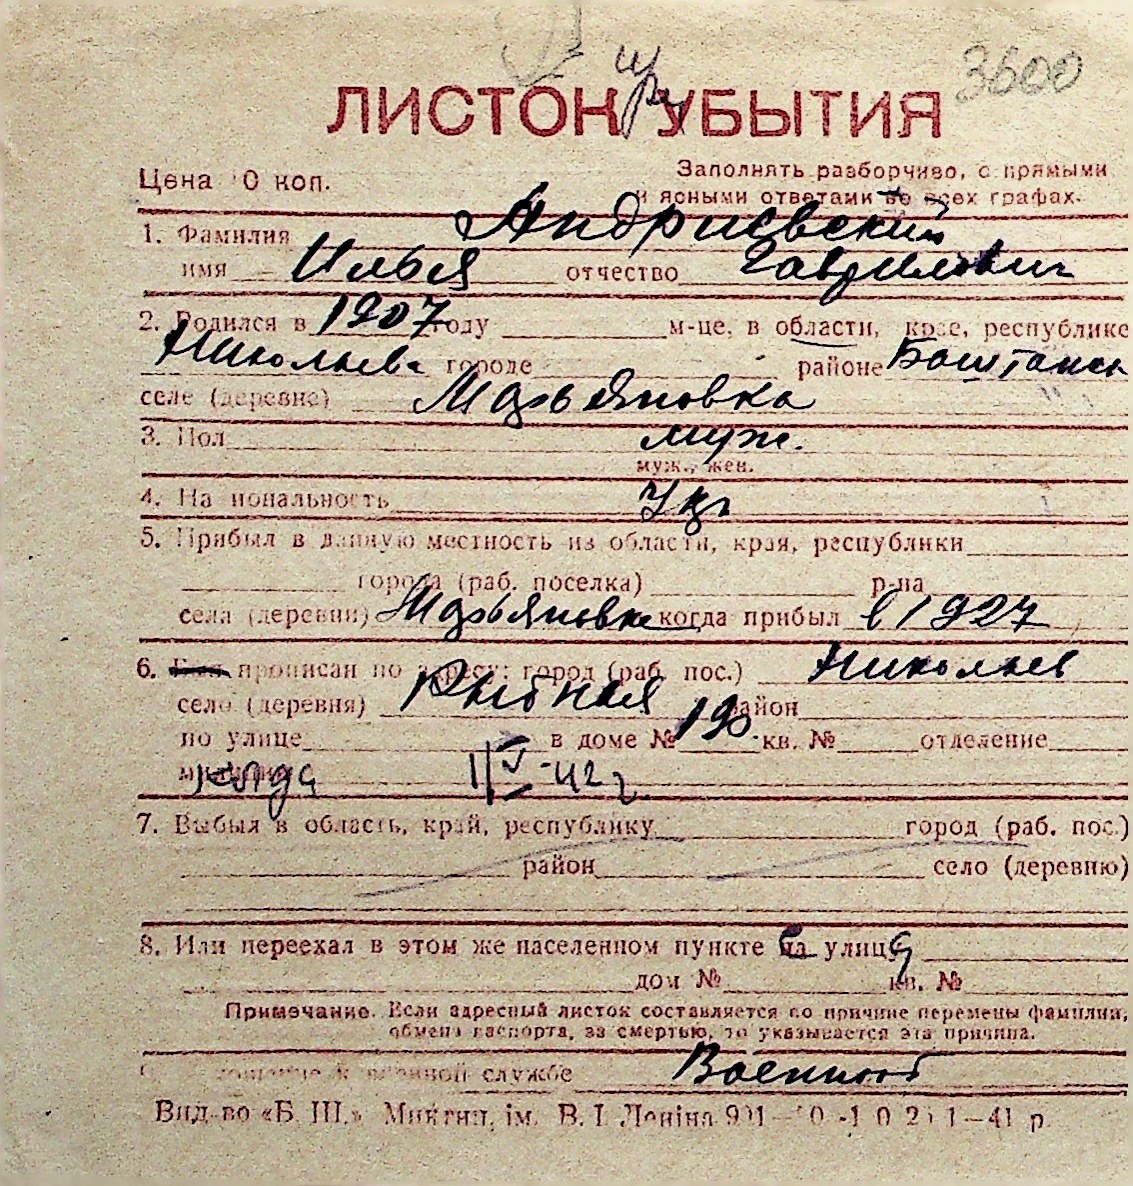 3600
ЛИСТОК УБЫТИЯ
Цена 0 коп.
Заполнять разборчиво, с прямыми
и ясными ответами во всех графах.
1. Фамилия Андриевский
имя Илья отчество Гаврилович
2. Родился в 1907 году м-це, в области, крае, республике
Николаев городе районе Баштанск
селе (деревне) Марьяновка
3. Пол муж.
муж., жен.
4. Национальность Укр
5. Прибыл в данную местность из области, края, республики
города (раб. поселка) р-на
села (деревни) Марьяновка когда прибыл в 1927
6. прописан по адресу: город (раб. пос.) Николаев
село (деревня) Рыбная район
по улице в доме № 190 кв. № отделение
милиции когда 1/V-42 г
7. Выбыл в область, край, республику город (раб. пос.)
район село (деревню)
8. Или переехал в этом же населенном пункте на улицу
дом № кв. №
Примечание. Если адресный листок составляется по причине перемены фамилии,
обмена паспорта, за смертью, то указывается эта причина.
военной службе Военнооб
Вид-во «Б. Ш.» Миклгип, ім. В. І. Леніна